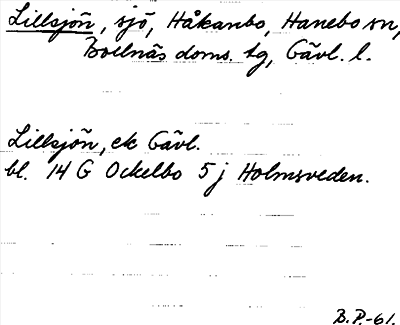 Lillsjön, sjö, Håkanbo, Hanebo sn,
Bollnäs doms. tg, Gävl. l.
Lillsjön, ek Gävl.
bl. 14 G Ockelbo 5 j Holmsveden.
B.P.-61.